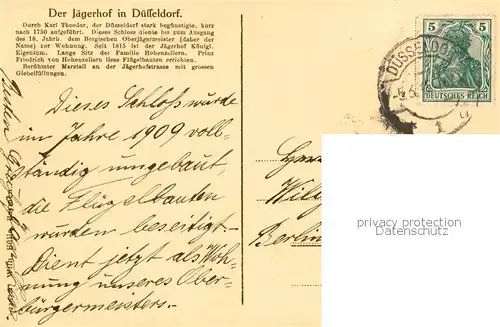 Der Jägerhof in Düsseldorf.
Durch Karl Theodor, der Düsseldorf stark begünstigte, kurz
nach 1750 aufgeführt. Dieses Schloss diente bis zum Ausgang
des 18. Jahrh. dem Bergischen Oberjägermeister (daher der
Name) zur Wohnung. Seit 1815 ist der Jägerhof Königl.
Eigentum. Lange Sitz der Familie Hohenzollern. Prinz
Friedrich von Hohenzollern liess Flügelbauten errichten.
Berühmter Marstall an der Jägerhofstrasse mit grossen
Giebelfüllungen.
5 5
DEUTSCHES REICH
DÜSSELDORF
1
Dieses Schloss wurde
im Jahre 1909 voll-
ständig umgebaut,
die Flügelbauten
wurden beseitigt.
Dient jetzt als Woh-
nung unseres Ober-
bürgermeisters.
Besten
Herrn
Willy
Berlin
privacy protection
overlay